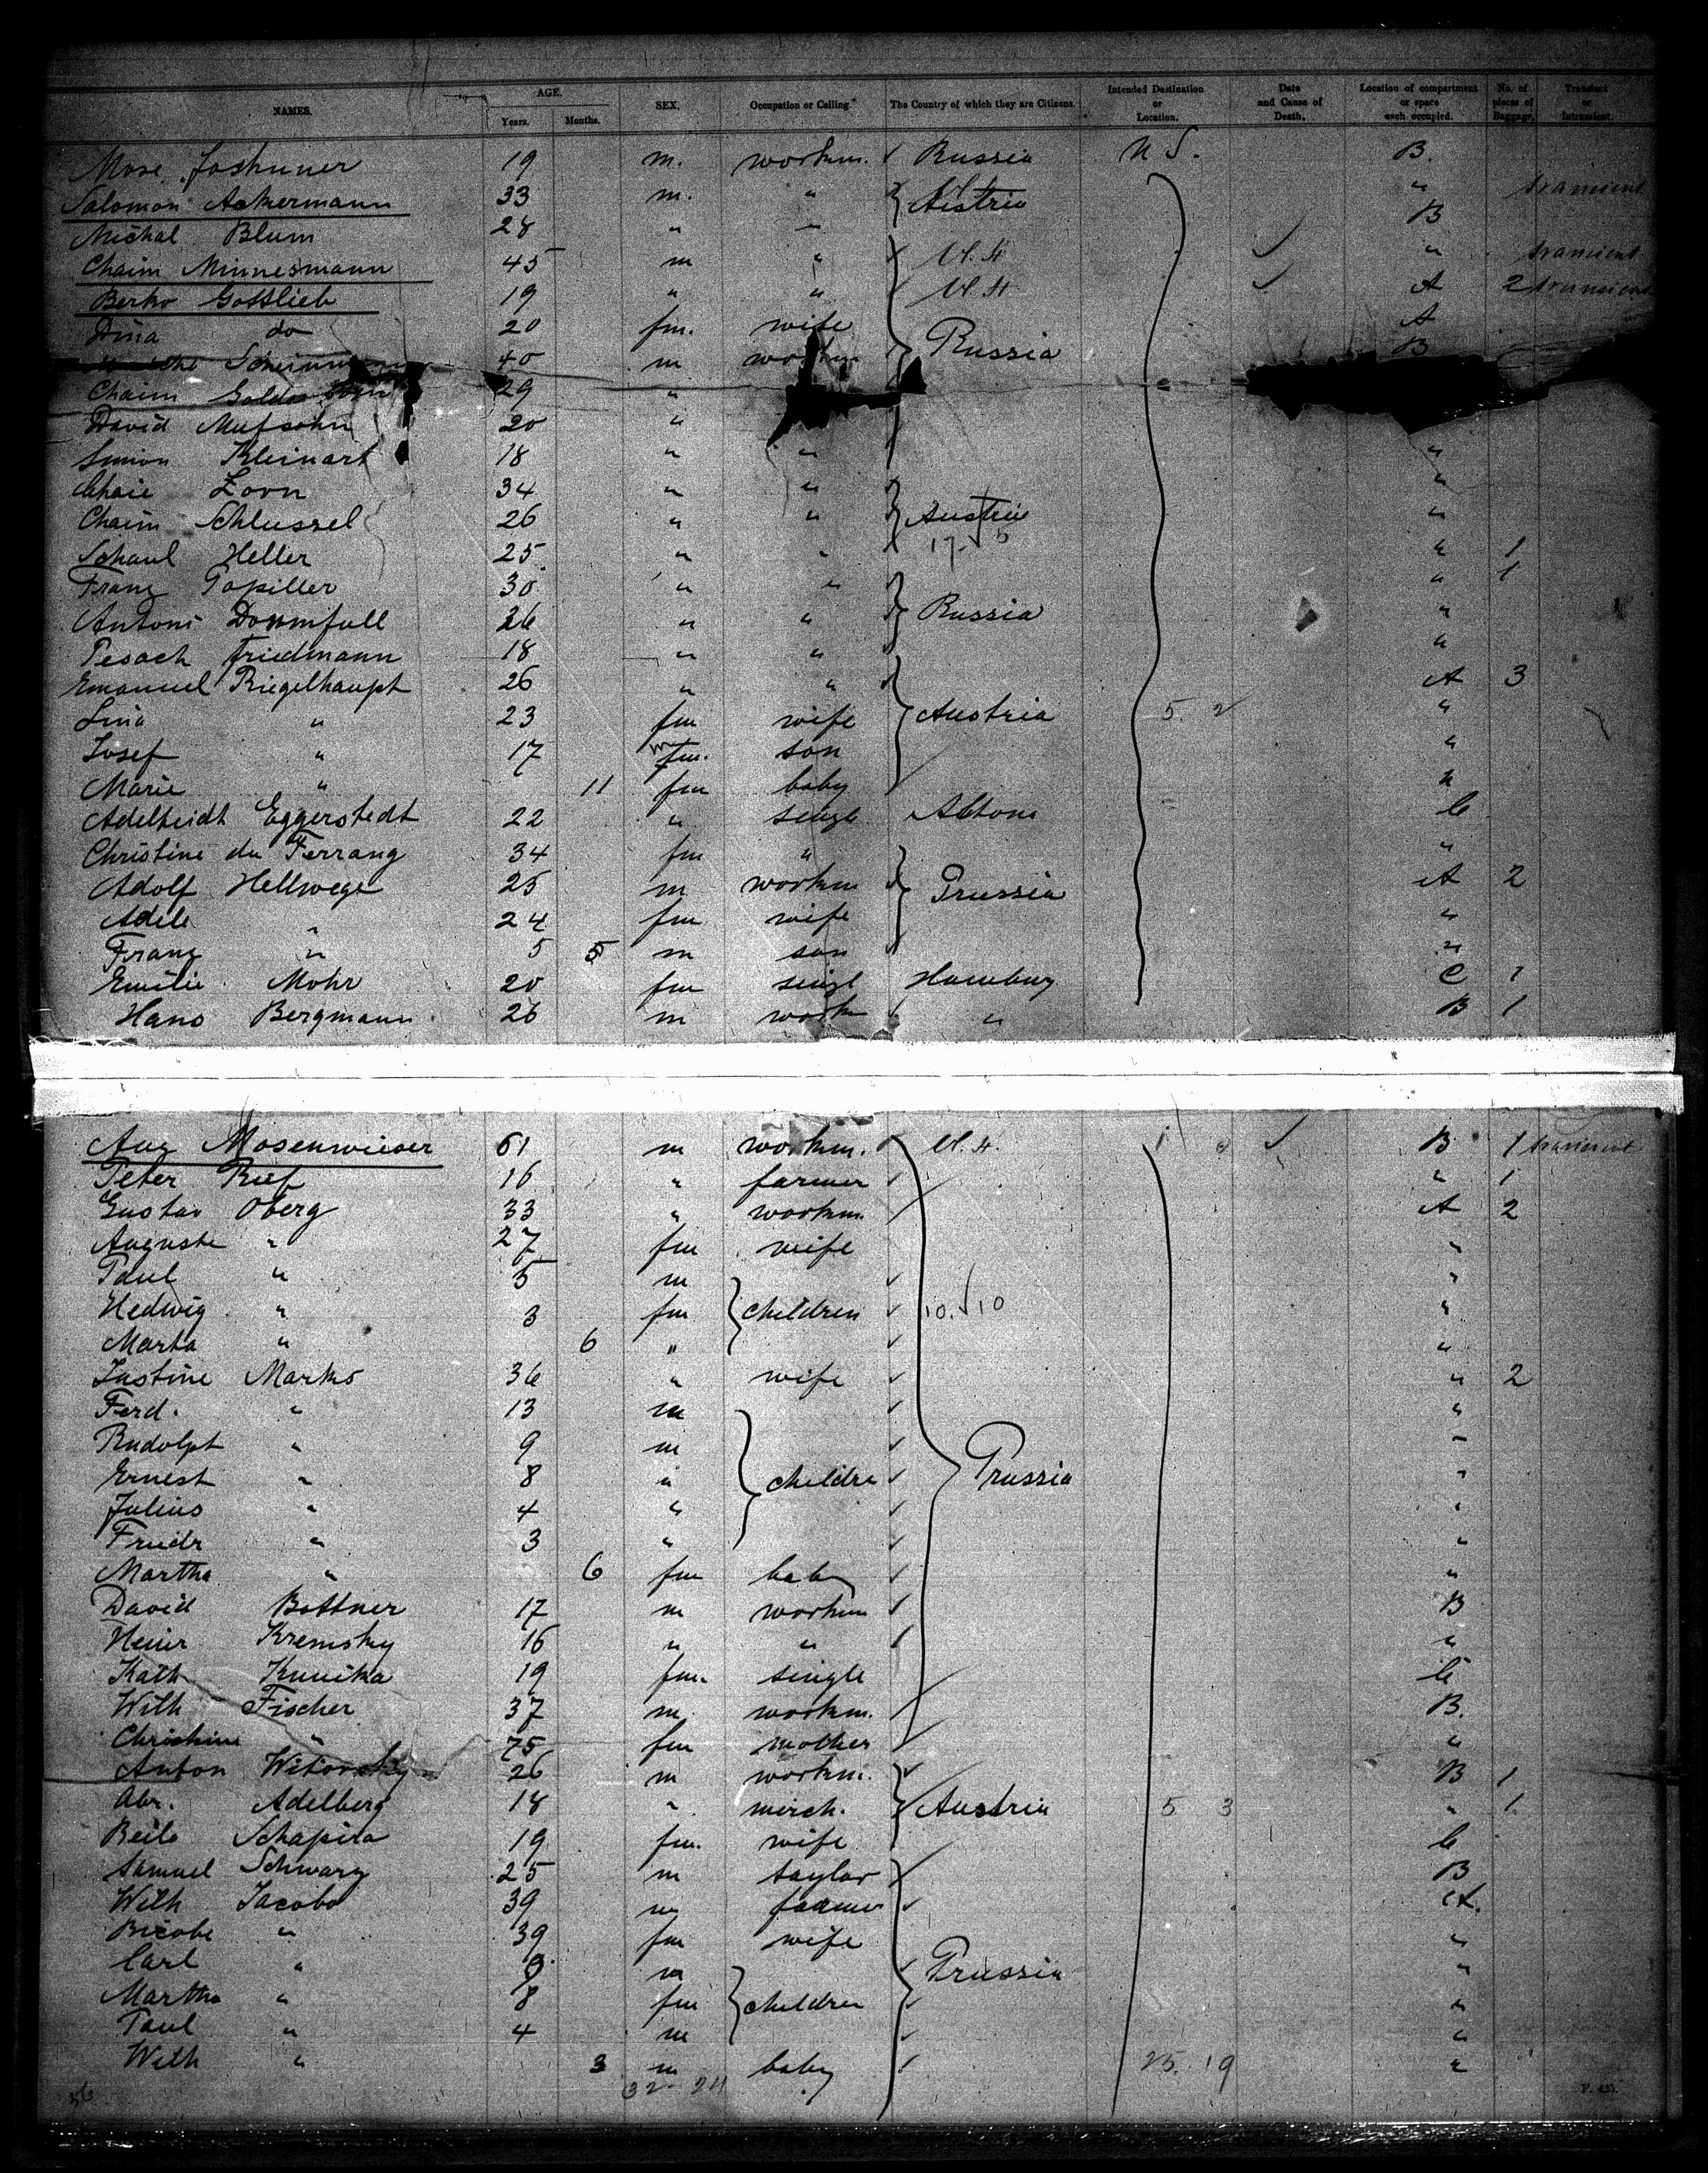 NAMES. AGE. Years. Months. SEX. Occupation or Calling. The Country of which they are Citizens. Intended Destination or Location. Date and Cause of Death. Location of compartment or space each occupied. No. of pieces of Baggage. Transient or Intransient.
Mose Joshuner 19 m. workm. Russia U S. B.
Salomon Ackermann 33 m. " Austria " transient
Michal Blum 28 " " B
Chaim Minnesmann 45 m " U. St " transient
Berko Gottlieb 19 " " U St A 2 transient
Dina do 20 fm. wife A
40 m Russia B
Chaim 29 "
David Mufsohn 20 "
Simon Kleinart 18 " " "
Chaie Zorn 34 " " "
Chaim Schlussel 26 " " Austria "
Schaul Heller 25 " " 17. 5 " 1
Franz Topiller 30 " " " 1
Antoni Dommfull 26 " " Russia "
Pesach Friedmann 18 " " "
Emanuel Riegelhaupt 26 " " A 3
Lina " 23 fm wife Austria 5. 2 "
Josef " 17 m son "
Marie " 11 fm baby "
Adelheidt Eggerstedt 22 " singl Altona C
Christine du Ferrang 34 fm " "
Adolf Hellwege 25 m workm Prussia A 2
Adele " 24 fm wife "
Franz " 5 5 m son "
Emilie Mohr 20 fm singl Hamburg C 1
Hans Bergmann 26 m workm " B 1
Aug Mosenwieser 61 m workm. U. St. B 1 transient
Peter Rief 16 " farmer " 1
Gustav Oberg 33 " workm. A 2
Auguste " 27 fm wife "
Paul " 5 m "
Hedwig " 3 fm children 10. 10 "
Marta " 6 " "
Justine Marks 36 " wife " 2
Ferd. " 13 m "
Rudolph " 9 m "
Ernest " 8 " childre Prussia "
Julius " 4 " "
Friedr " 3 " "
Martha " 6 fm baby "
David Bottner 17 m workm B
Heinr Kremsky 16 " " "
Kath Kunika 19 fm. single C
Wilh Fischer 37 m. workm. B.
Christine " 75 fm mother "
Anton Witovsky 26 m workm. B 1
Abr. Adelberg 18 " merch. Austria 5 3 " 1.
Beile Schapira 19 fm. wife C
Samuel Schwarz 25 m taylor B
Wilh Jacobs 39 m farmer A.
" 39 fm wife "
Carl " m Prussia "
Martha " 8 fm children "
Paul " 4 m "
Wilh " 3 m baby 25. 19 "
56 32 24